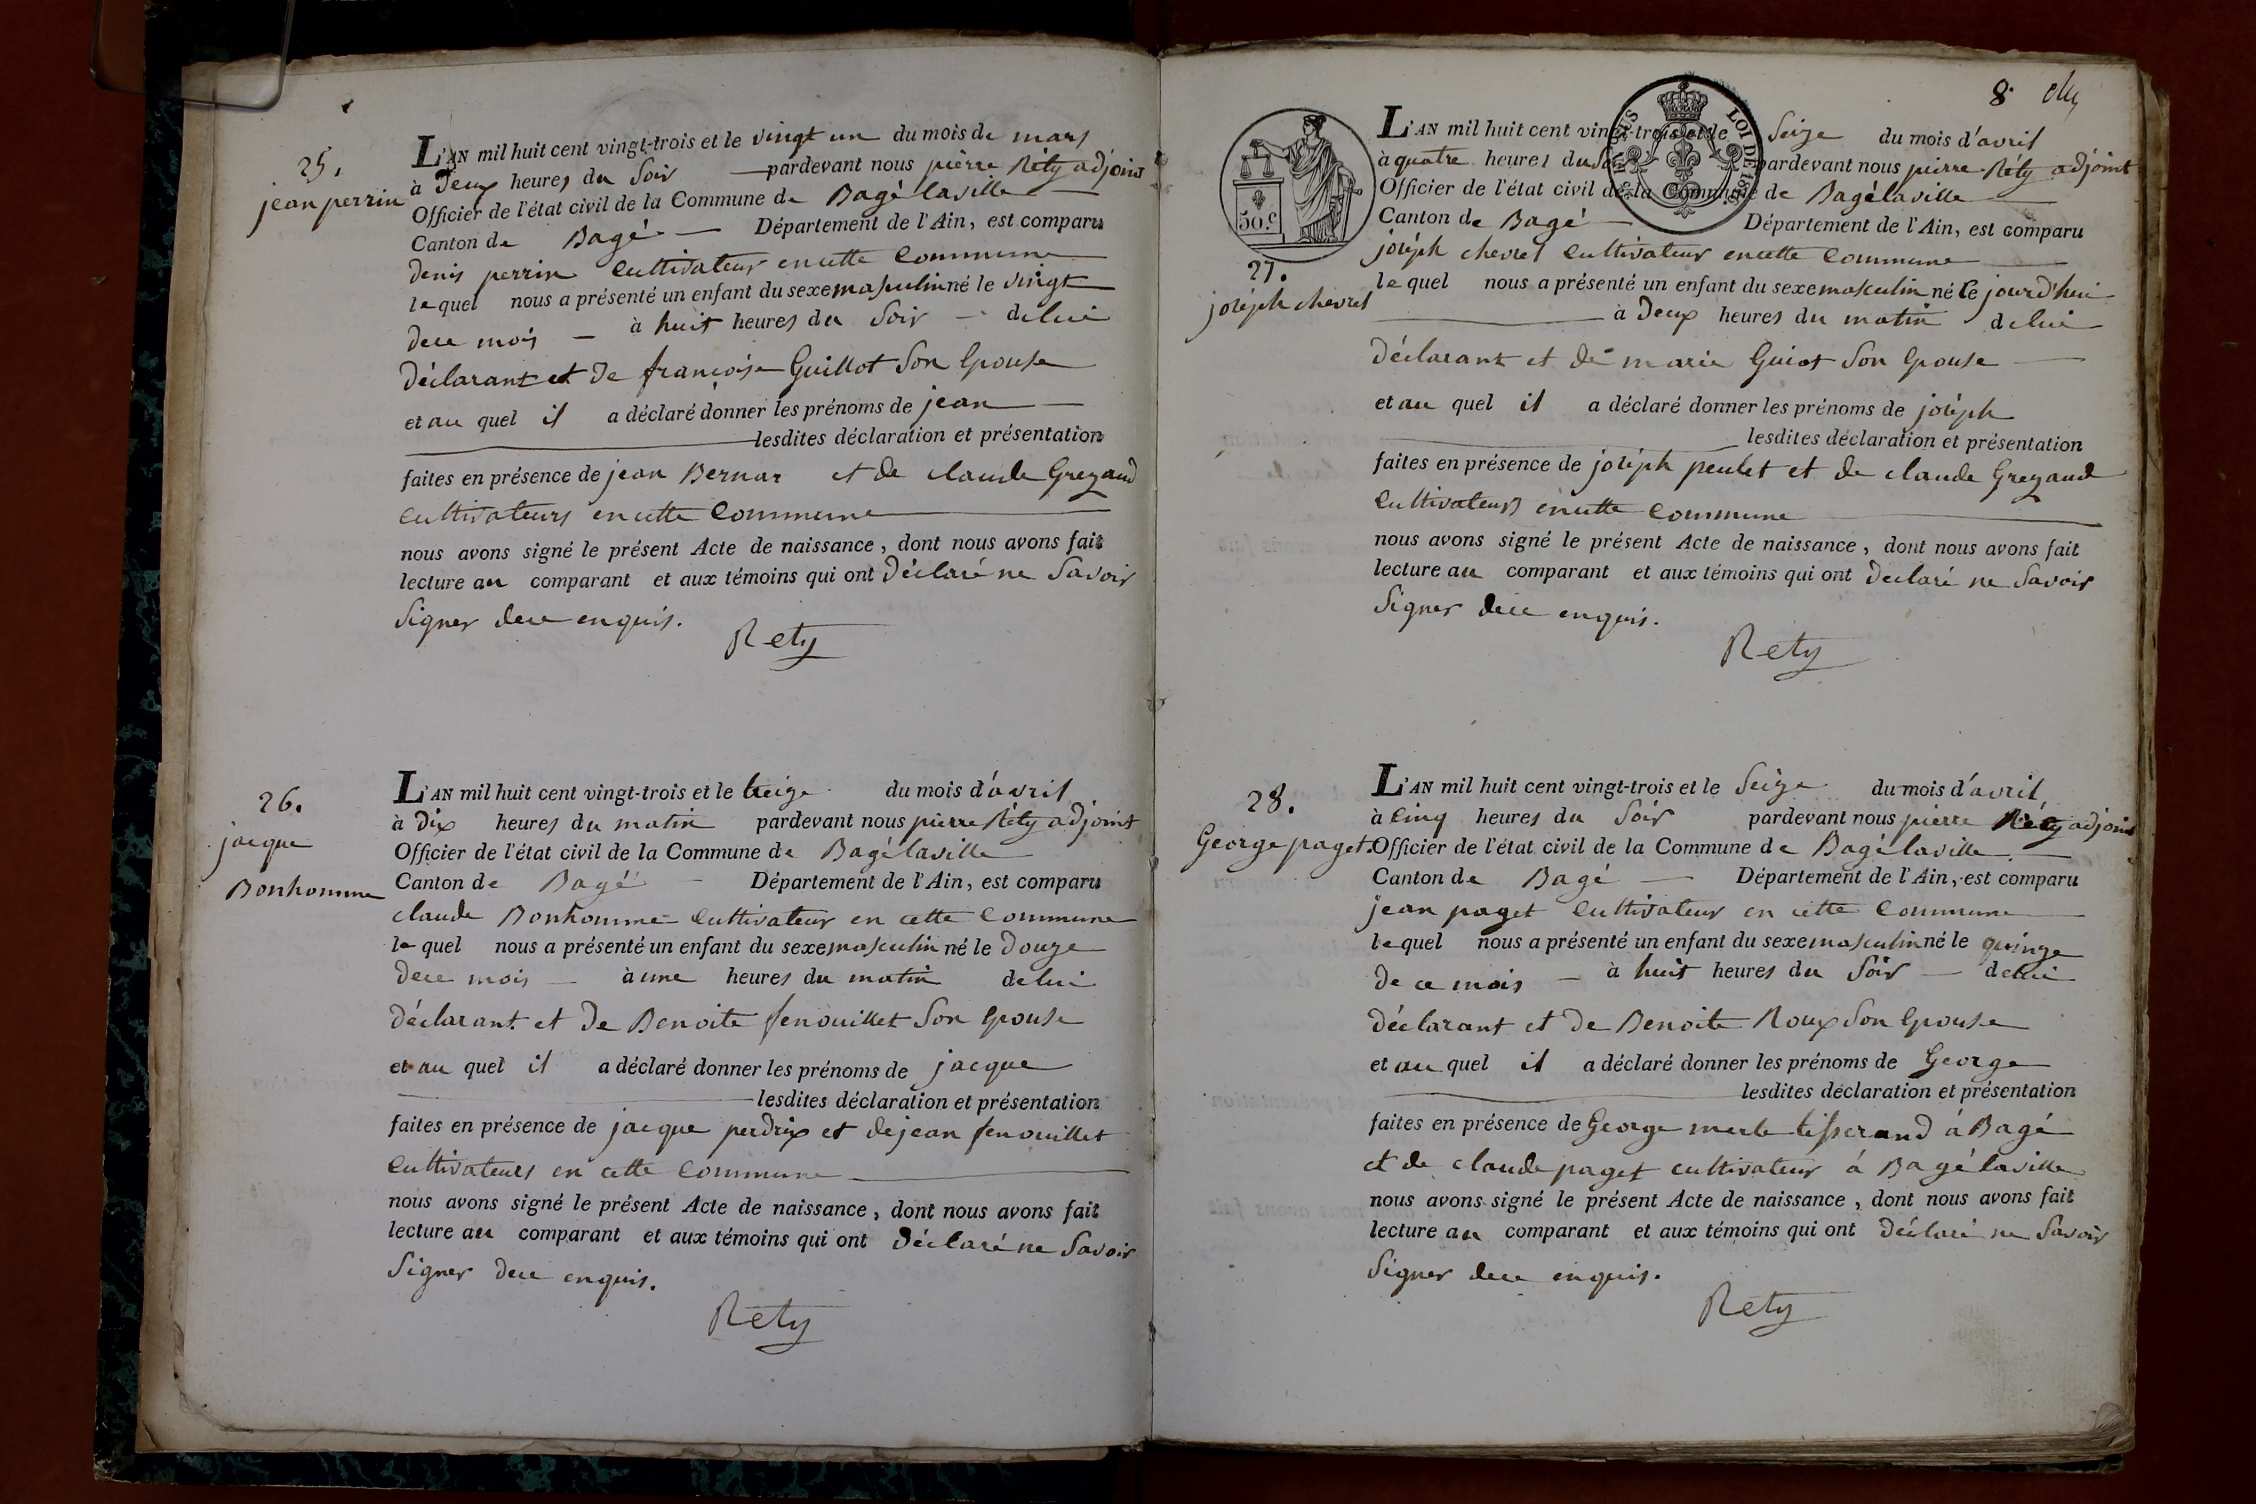 25.
jean perrin
L'AN mil huit cent vingt-trois et le vingt un du mois de mars
à Deux heures du Soir pardevant nous pierre Réty adjoint
Officier de l'état civil de la Commune de Bagé laville
Canton de Bagé Département de l'Ain, est comparu
denis perrin Cultivateur en cette Commune
lequel nous a présenté un enfant du sexe masculin né le vingt
dece mois à huit heures du Soir de lui
déclarant et de françoise Guillot Son Epouse
et au quel il a déclaré donner les prénoms de jean
lesdites déclaration et présentation
faites en présence de jean Bernar et de claude Grezaud
Cultivateurs en cette Commune
nous avons signé le présent Acte de naissance, dont nous avons fait
lecture au comparant et aux témoins qui ont Déclaré ne Savoir
Signer dece enquis.
Réty
26.
jacque
Bonhomme
L'AN mil huit cent vingt-trois et le treize du mois d'avril
à Dix heures du matin pardevant nous pierre Réty adjoint
Officier de l'état civil de la Commune de Bagé laville
Canton de Bagé Département de l'Ain, est comparu
claude Bonhomme Cultivateur en cette Commune
lequel nous a présenté un enfant du sexe masculin né le Douze
dece mois à une heures du matin de lui
déclarant et de Benoite fenouillet Son Epouse
et au quel il a déclaré donner les prénoms de jacque
lesdites déclaration et présentation
faites en présence de jacque perdrix et de jean fenouillet
Cultivateurs en cette Commune
nous avons signé le présent Acte de naissance, dont nous avons fait
lecture au comparant et aux témoins qui ont Déclaré ne Savoir
Signer dece enquis.
Réty
8.
50.c
LOI DE
27.
joséph chevrel
L'AN mil huit cent vingt-trois et le Seize du mois d'avril
à quatre heures du Soir pardevant nous pierre Réty adjoint
Officier de l'état civil de la Commune de Bagé laville
Canton de Bagé Département de l'Ain, est comparu
joséph chevrel Cultivateur en cette Commune
lequel nous a présenté un enfant du sexe masculin né le jourd'hui
à Deux heures du matin de lui
déclarant et de marie Guiot Son Epouse
et au quel il a déclaré donner les prénoms de joséph
lesdites déclaration et présentation
faites en présence de joséph peulet et de claude Grezaud
Cultivateurs en cette Commune
nous avons signé le présent Acte de naissance, dont nous avons fait
lecture au comparant et aux témoins qui ont declaré ne Savoir
Signer dece enquis.
Réty
28.
George paget.
L'AN mil huit cent vingt-trois et le Seize du mois d'avril
à Cinq heures du Soir pardevant nous pierre Réty adjoint
Officier de l'état civil de la Commune de Bagé laville
Canton de Bagé Département de l'Ain, est comparu
jean paget Cultivateur en cette Commune
lequel nous a présenté un enfant du sexe masculin né le quinze
de ce mois à huit heures du Soir de lui
déclarant et de Benoite Roux Son Epouse
et au quel il a déclaré donner les prénoms de George
lesdites déclaration et présentation
faites en présence de George merle tisserand à Bagé
et de claude paget cultivateur à Bagé laville
nous avons signé le présent Acte de naissance, dont nous avons fait
lecture au comparant et aux témoins qui ont déclaré ne Savoir
Signer dece enquis.
Réty